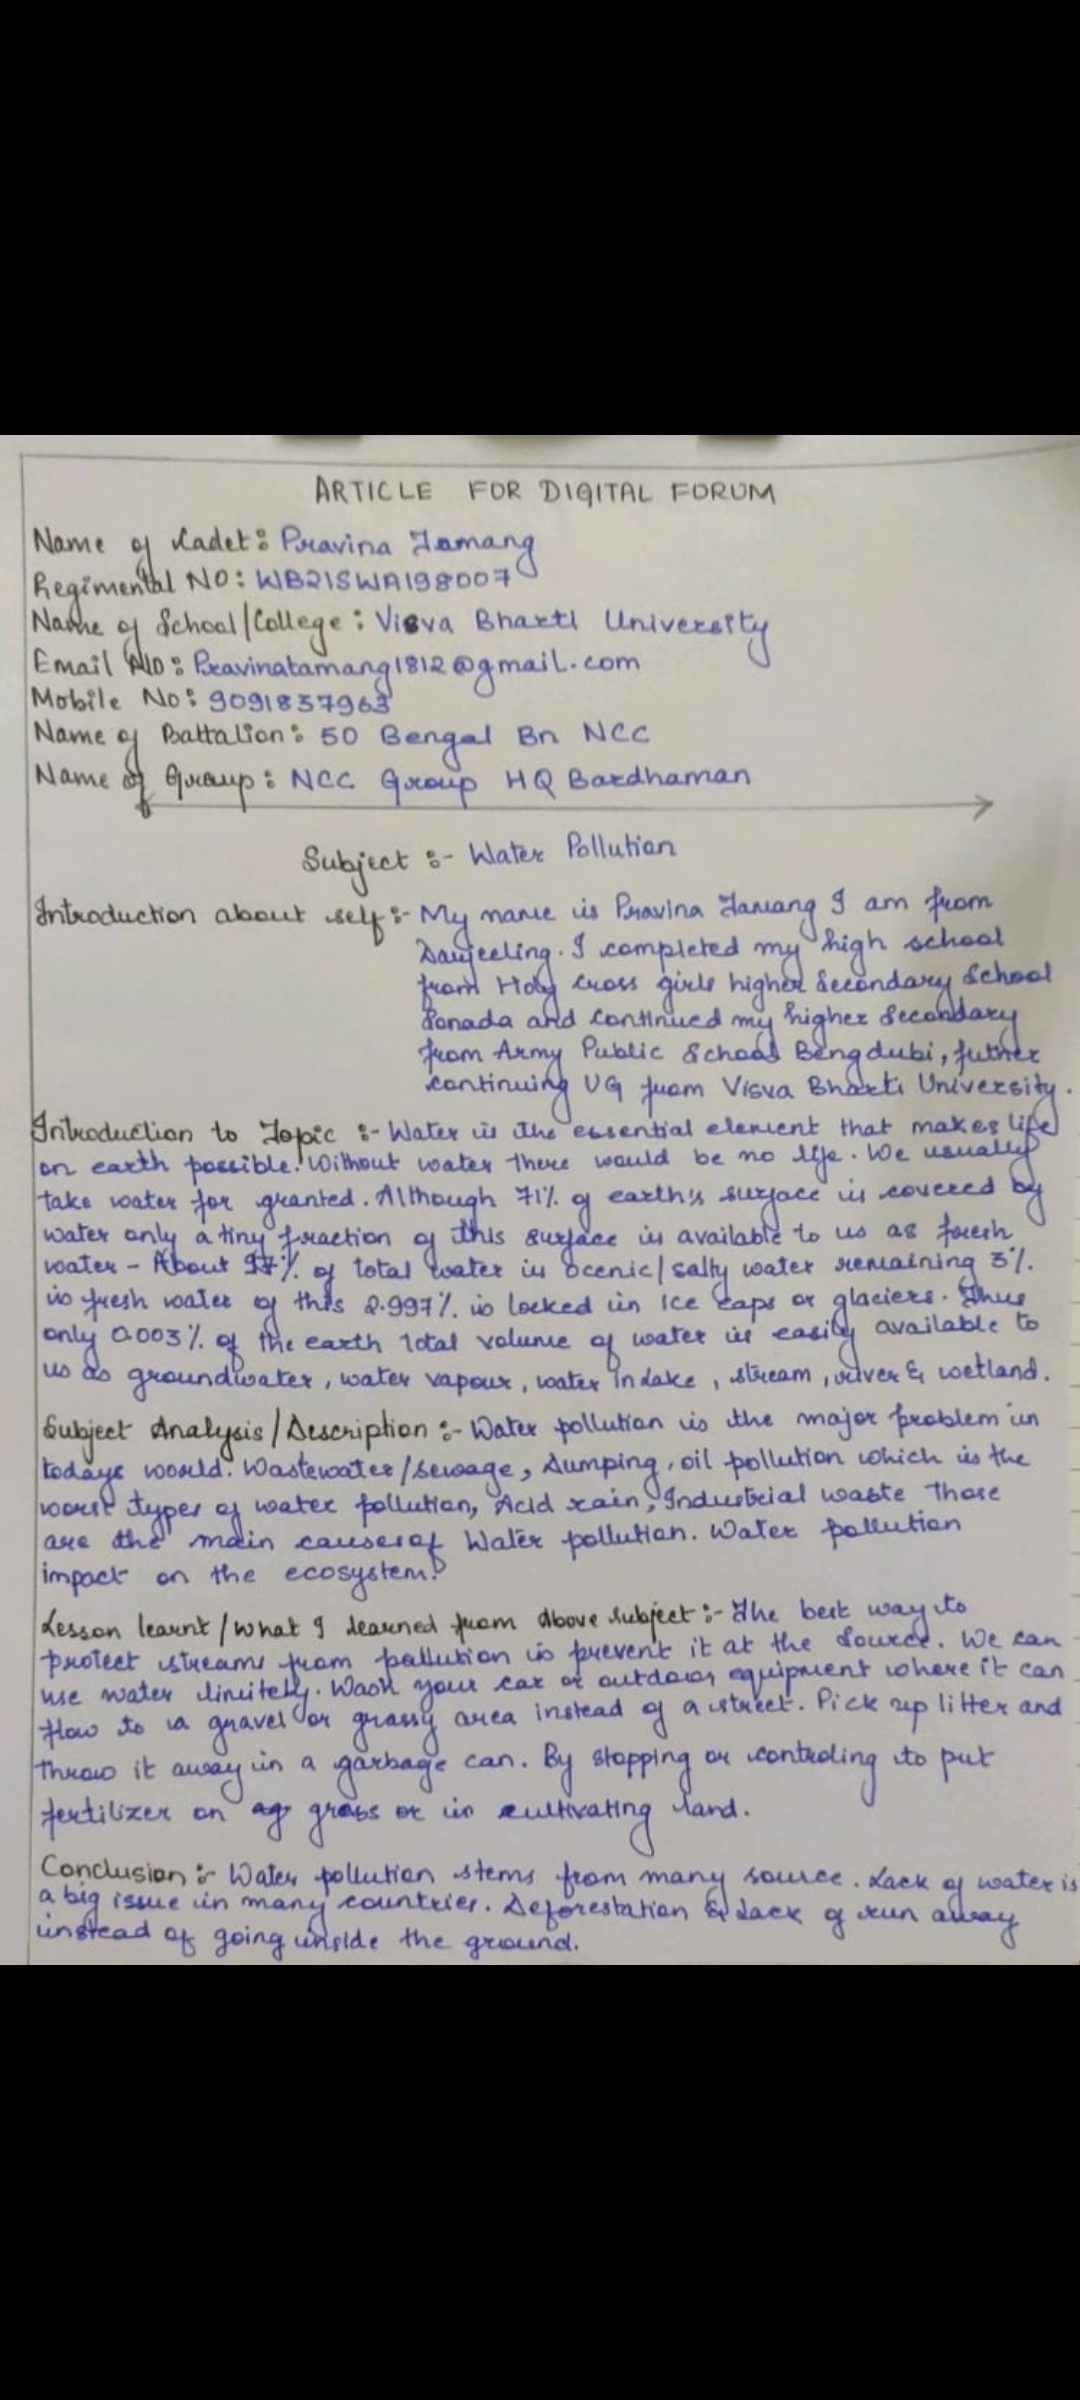 ARTICLE FOR DIGITAL FORUM
Name of Cadet: Pravina Tamang
Regimental NO: WB21SWA198007
Name of School/College: Visva Bharti University
Email NO: Pravinatamang1812@gmail.com
Mobile No: 9091837963
Name of Battalion: 50 Bengal Bn NCC
Name of Group: NCC Group HQ Bardhaman
Subject :- Water Pollution
Introduction about self :- My name is Pravina Tamang I am from
Darjeeling. I completed my high school
from Holy cross girls higher Secondary School
Sonada and continued my higher Secondary
from Army Public School Bengdubi, futher
continuing UG from Visva Bharti University.
Introduction to Topic :- Water is the essential element that makes life
on earth possible. Without water there would be no life. We usually
take water for granted. Although 71% of earth's surface is covered by
water only a tiny fraction of this surface is available to us as fresh
water - About 97% of total water is ocenic/salty water remaining 3%.
is fresh water of this 2.997% is locked in Ice caps or glaciers. Thus
only 0.003% of the earth total volume of water is easily available to
us as groundwater, water vapour, water in lake, stream, river & wetland.
Subject Analysis/Description :- Water pollution is the major problem in
todays world. Wastewater/sewage, Dumping, oil pollution which is the
worst types of water pollution, Acid rain, Industrial waste These
are the main causes of Water pollution. Water pollution
impact on the ecosystem.
Lesson learnt/what I learned from above subject :- The best way to
protect streams from pollution is prevent it at the source. We can
use water limitely. Wash your car or outdoor equipment where it can
flow to a gravel or grassy area instead of a street. Pick up litter and
throw it away in a garbage can. By stopping or controling to put
fertilizer on grass or in cultivating land.
Conclusion :- Water pollution stems from many source. Lack of water is
a big issue in many countries. Deforestation & lack of run away
instead of going inside the ground.